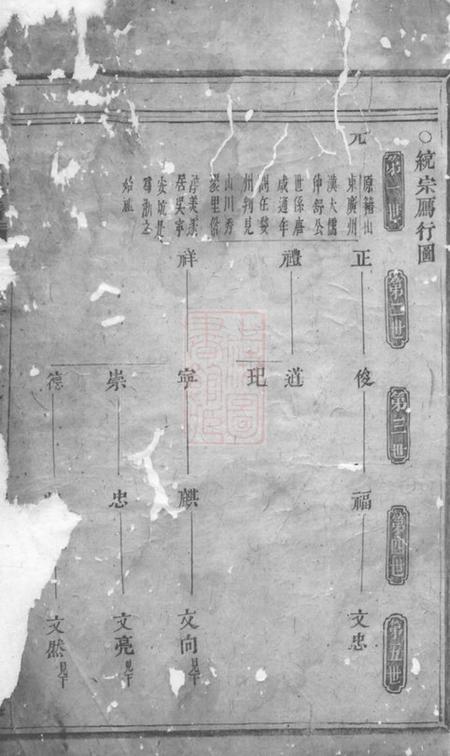 ○統宗鴈行圖
第一世
第二世
第三世
第四世
第五世
元
原籍山
東廣州
漢大儒
仲舒公
世係唐
咸通年
州判見
山川秀
麗里俗
淳美遂
居吴寧
始祖
正
俊
福
文忠
禮
道
玘
祥
寧
麒
文向見下
崇
忠
文亮見下
德
文然見下